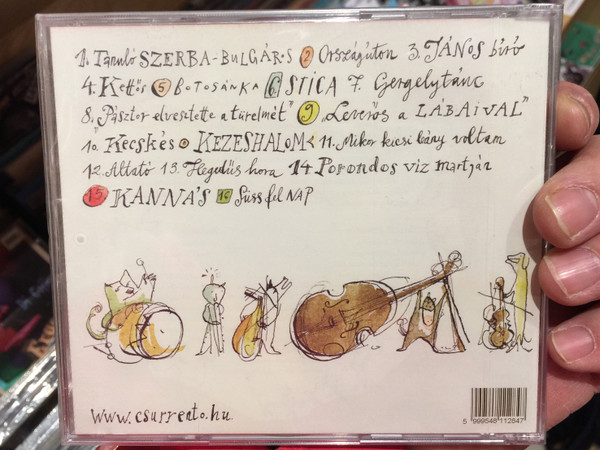 1. Tanuló SZERBA-BULGÁRS 2 Országúton 3. JÁNOS bíró
4. Kettős 5 BOTOSÁNKA 6. STICA 7. Gergelytánc
8. „Pásztor elvesztette a türelmét" 9 „Leverős a LÁBAIVAL"
10. Kecskés KEZESHALOM 11. Mikor kicsi lány voltam
12. Altató 13. Hegedűs hora 14 Porondos víz martján
15 KANNÁS 16 Süss fel NAP
www.csurrento.hu
5 999548 112847